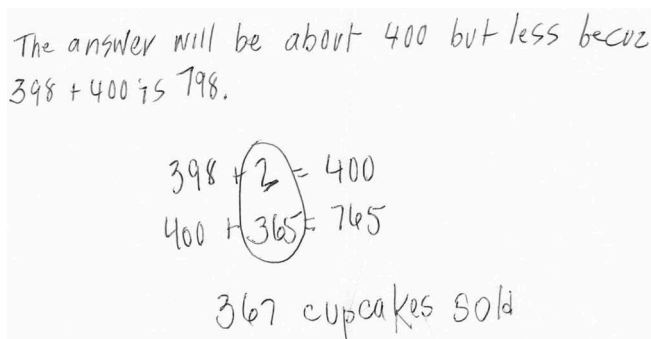 The answer will be about 400 but less becuz
398 + 400 is 798.
398 + 2 = 400
400 + 365 = 765
367 cupcakes sold